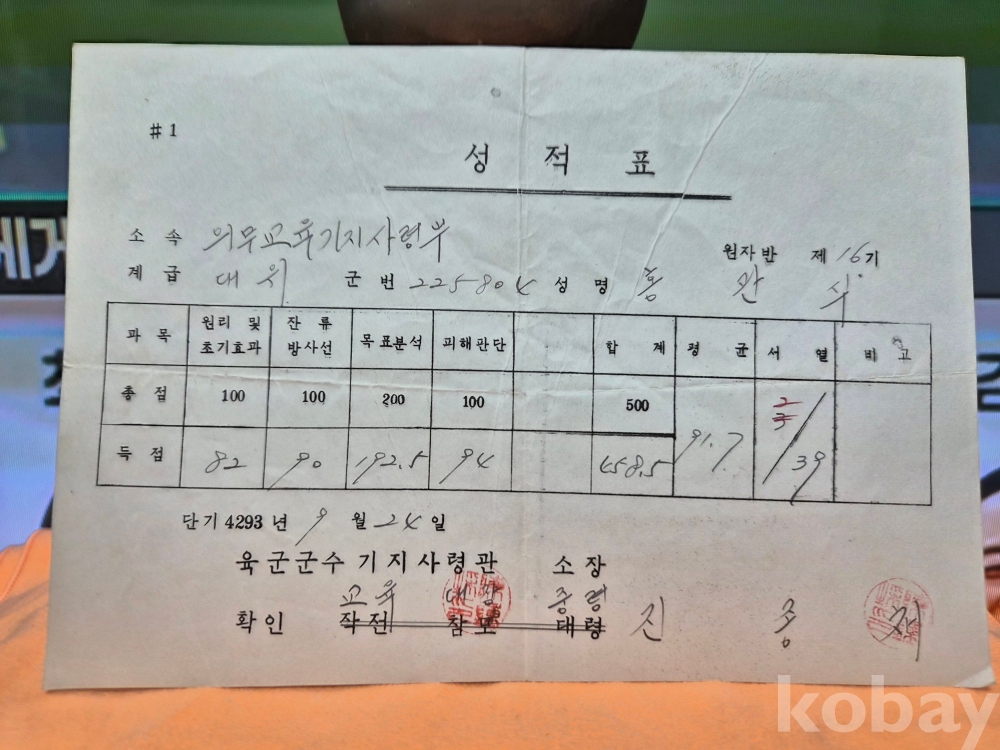 # 1
성 적 표
소 속 의무교육기지사령부
원자반 제 16 기
계 급 대위 군 번 225804 성 명 홍 완 식
과 목 원리 및 초기효과 잔 류 방사선 목표분석 피해판단 합 계 평 균 서 열 비 고
총 점 100 100 200 100 500 91.7 2/39
득 점 82 90 192.5 94 458.5
단기 4293 년 9 월 24 일
육군군수기지사령관 소장
교육 대장 중령
확인 작전 참모 대령 진 종 채
kobay